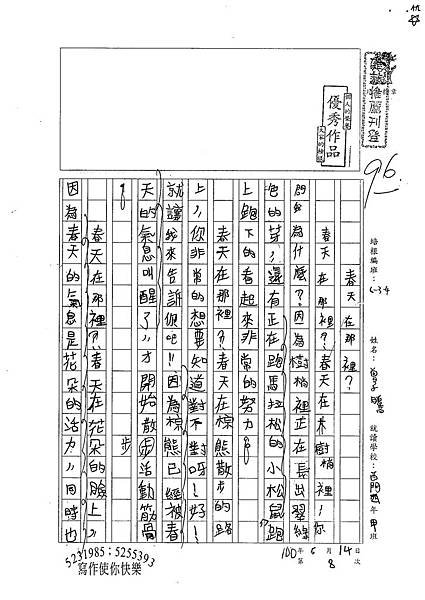 優秀作品
推薦刊登
96
培根編班:C-34
姓名:
就讀學校:西門四年甲班
100年6月14日
第8次
春天在那裡?
春天在那裡?春天在木樹梢裡!你
問我為什麼?因為樹梢裡正在長出翠綠
色的芽,還有正在跑馬拉松的小松鼠跑
上跑下的看起來非常的努力。
春天在那裡?春天在棕熊散步的路
上,你非常的想要知道對不對呀!好!
就讓我來告訴你吧!!因為棕熊已經被春
天的氣息叫醒了,才開始散步活動筋骨
。
春天在那裡?春天在花朵的臉上,
因為春天的氣息是花朵的活力,同時也
5231985;5255393
寫作使你快樂